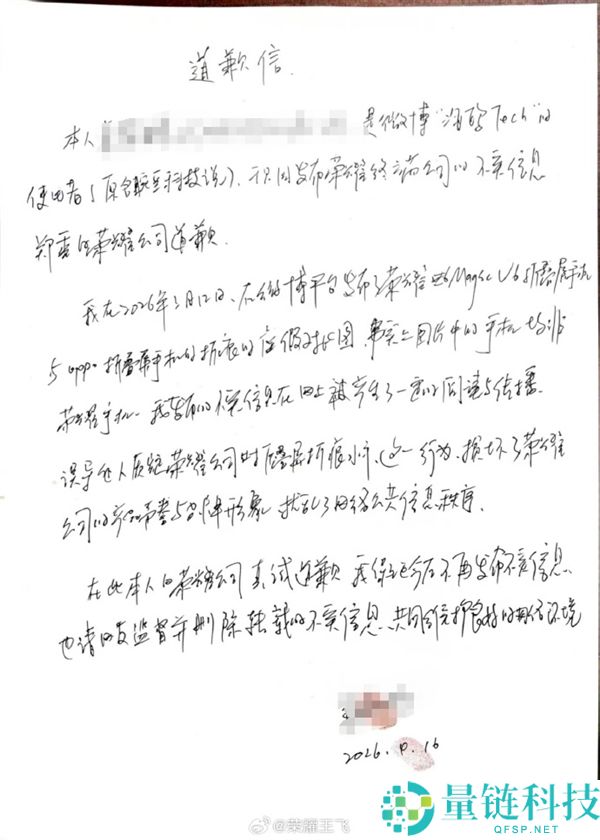 道歉信
本人 是微博"酒醇Tech"的
使用者(原名 科技说),我因发布荣耀终端公司的不实信息
郑重向荣耀公司道歉。
我在2026年3月12日,在微博平台发布了荣耀 Magic V6折叠屏手机
与oppo折叠屏手机的折痕的虚假对比图,事实上图片中的手机均非
荣耀手机。我发布的不实信息在网上被产生了一定的阅读与传播。
误导他人质疑荣耀公司对折叠屏折痕 ,这一行为,损坏了荣耀
公司的产品声誉与品牌形象,扰乱了网络公共信息秩序。
在此本人向荣耀公司真诚道歉,我保证今后不再发布不实信息,
也请网友监督并删除转载的不实信息,共同维护良好的网络环境
2026. 16
@荣耀王飞
量链科技
QFSP.NET